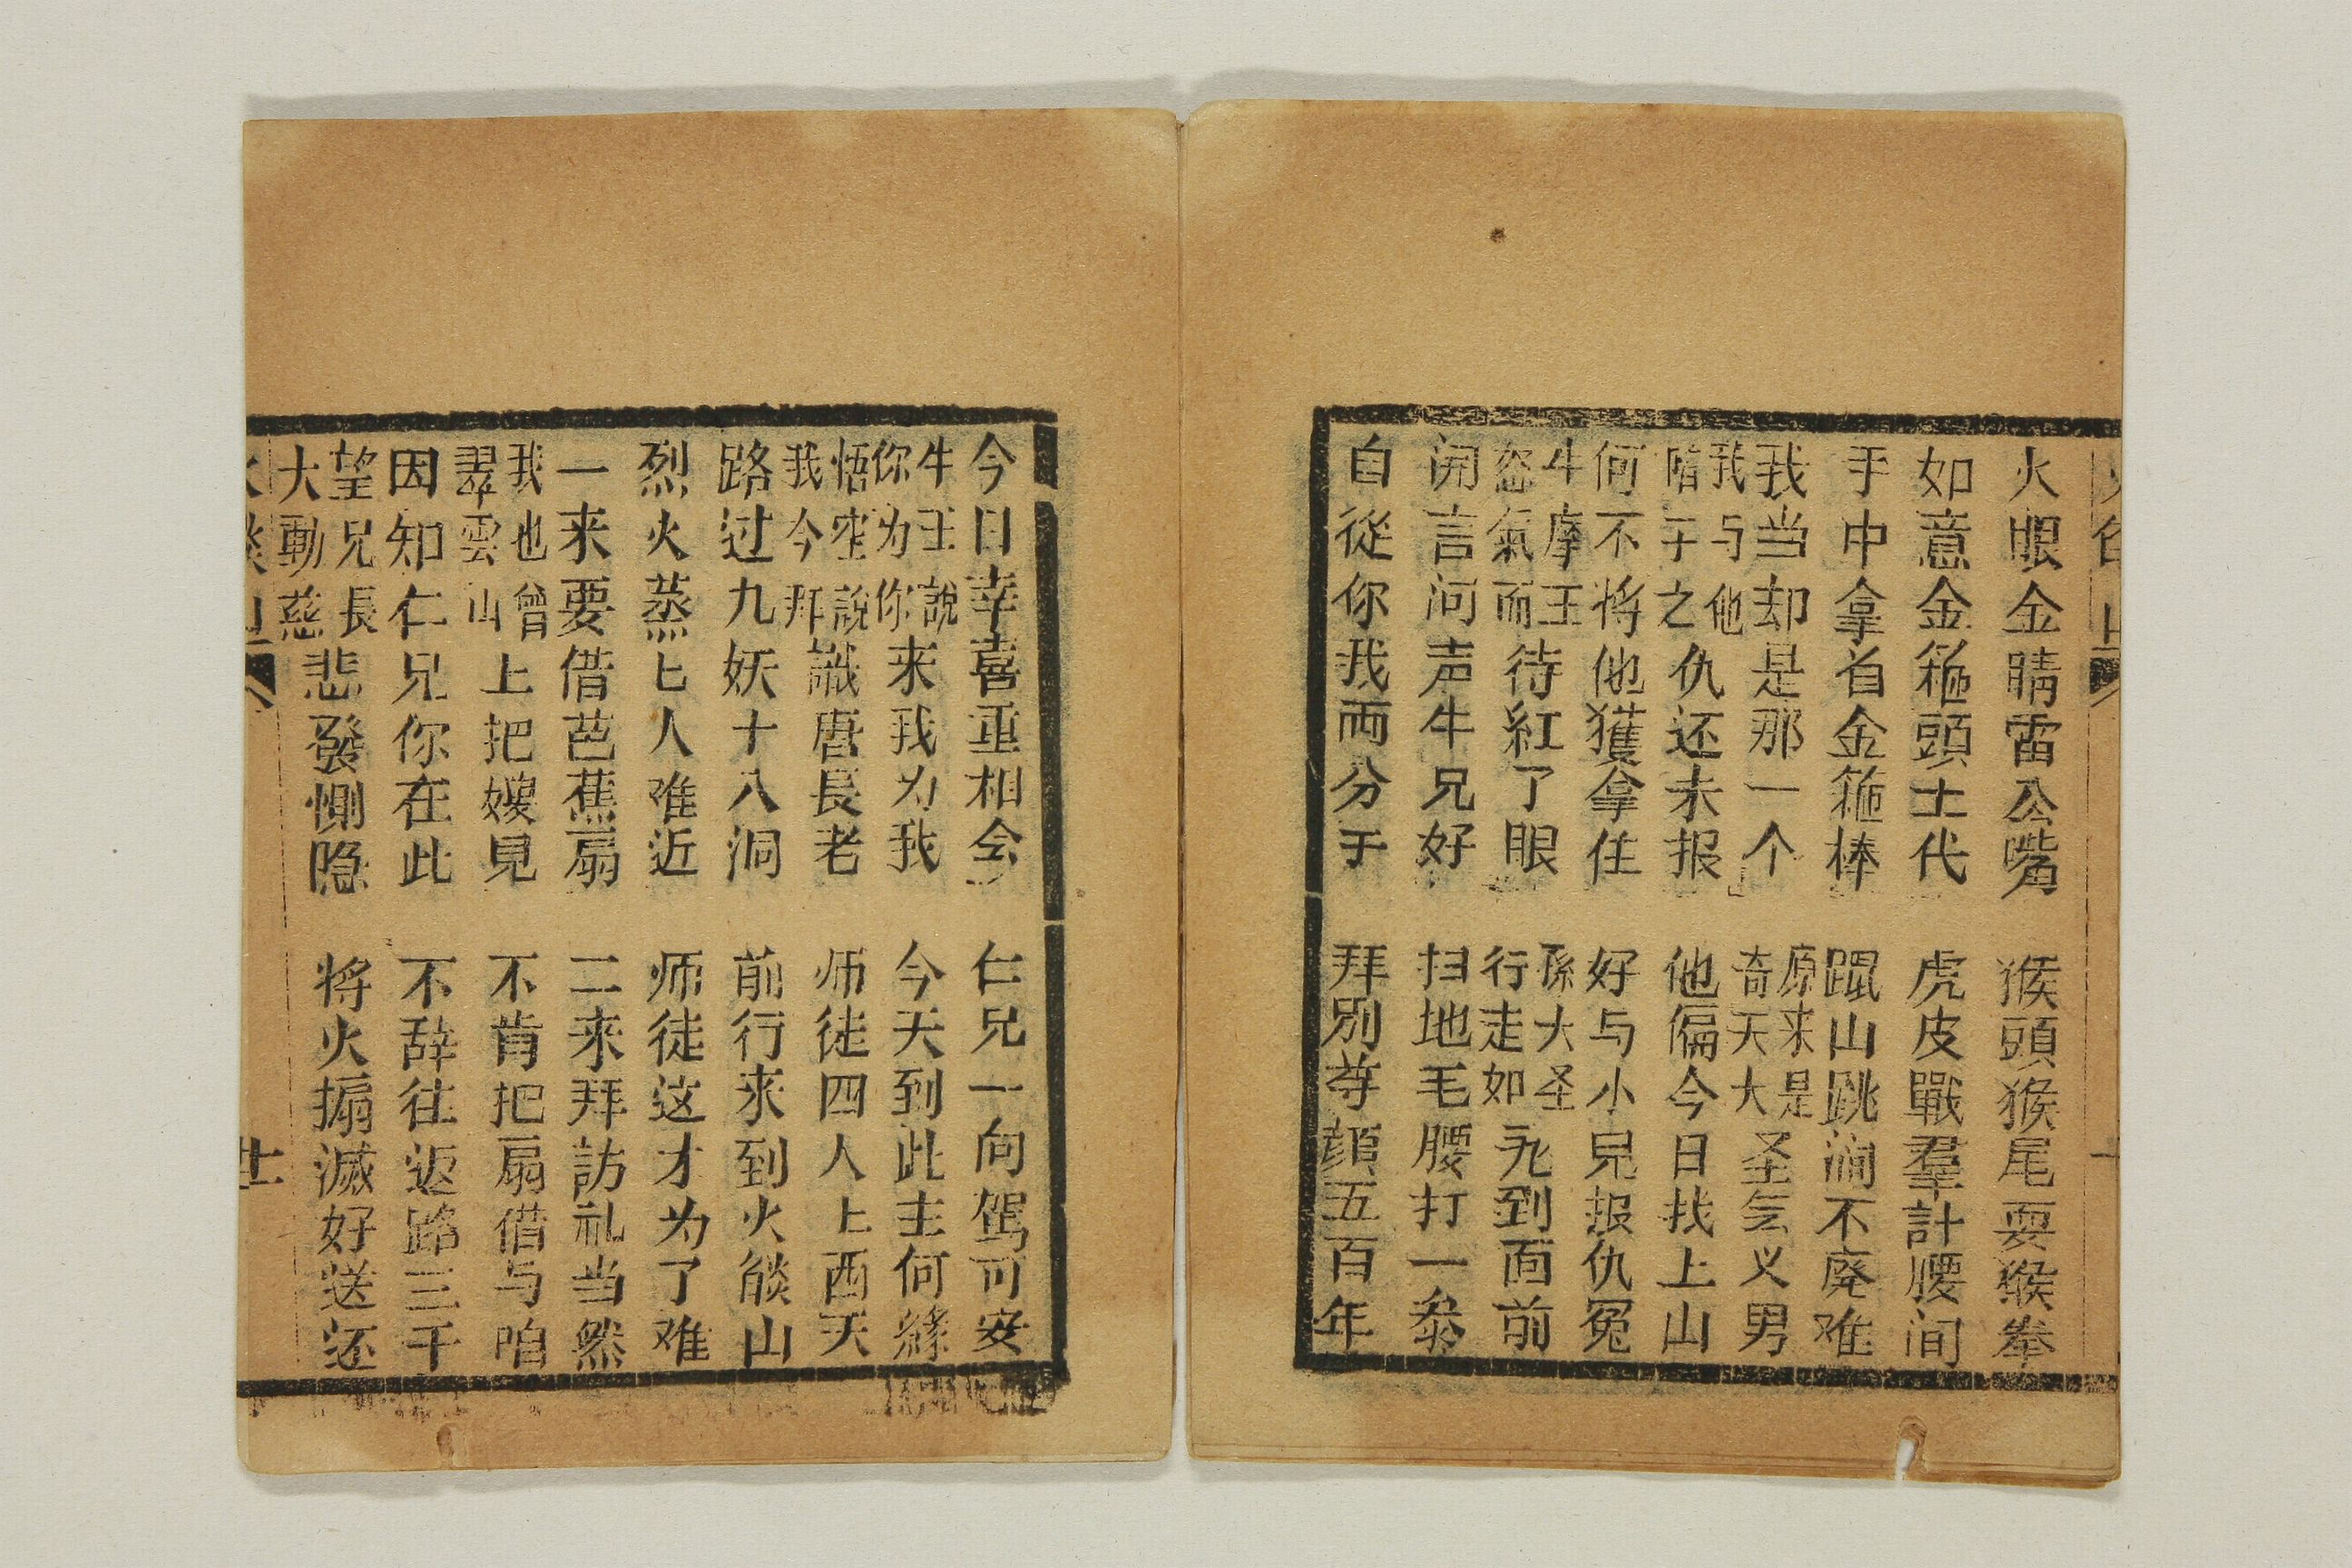 火眼金睛雷公嘴 猴頭猴尾耍猴拳
如意金箍頭上代 虎皮戰羣計腰间
手中拿着金箍棒 蹓山跳涧不废难
我当却是那一个 原来是奇天大圣气义男
我与他暗于之仇还未报 他偏今日找上山
何不将他獲拿住 好与小兒报仇冤
牛摩王忿氣而待紅了眼 孫大圣行走如禿到面前
闭言问声牛兄好 扫地毛腰打一叅
自從你我両分手 拜别尊顔五百年
今日幸喜重相会 仁兄一向駕可安
牛王說你为你来我为我 今天到此主何緣
悟空說我今拜識唐長老 师徒四人上西天
路过九妖十八洞 前行来到火燄山
烈火蒸匕人难近 师徒这才为了难
一来要借芭蕉扇 二来拜訪礼当然
我也曾翠雲山上把嫂見 不肯把扇借与咱
因知仁兄你在此 不辞往返路三千
望兄長大動慈悲發惻隐 将火搧滅好送还
廿